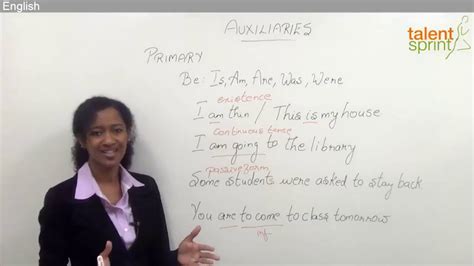 English
AUXILIARIES
talent
sprint
PRIMARY
Be: Is, Am, Are, Was, Were
existence
I am thin / This is my house
continuous tense
I am going to the library
passive form
Some students were asked to stay back.
You are to come to class tomorrow
inf-